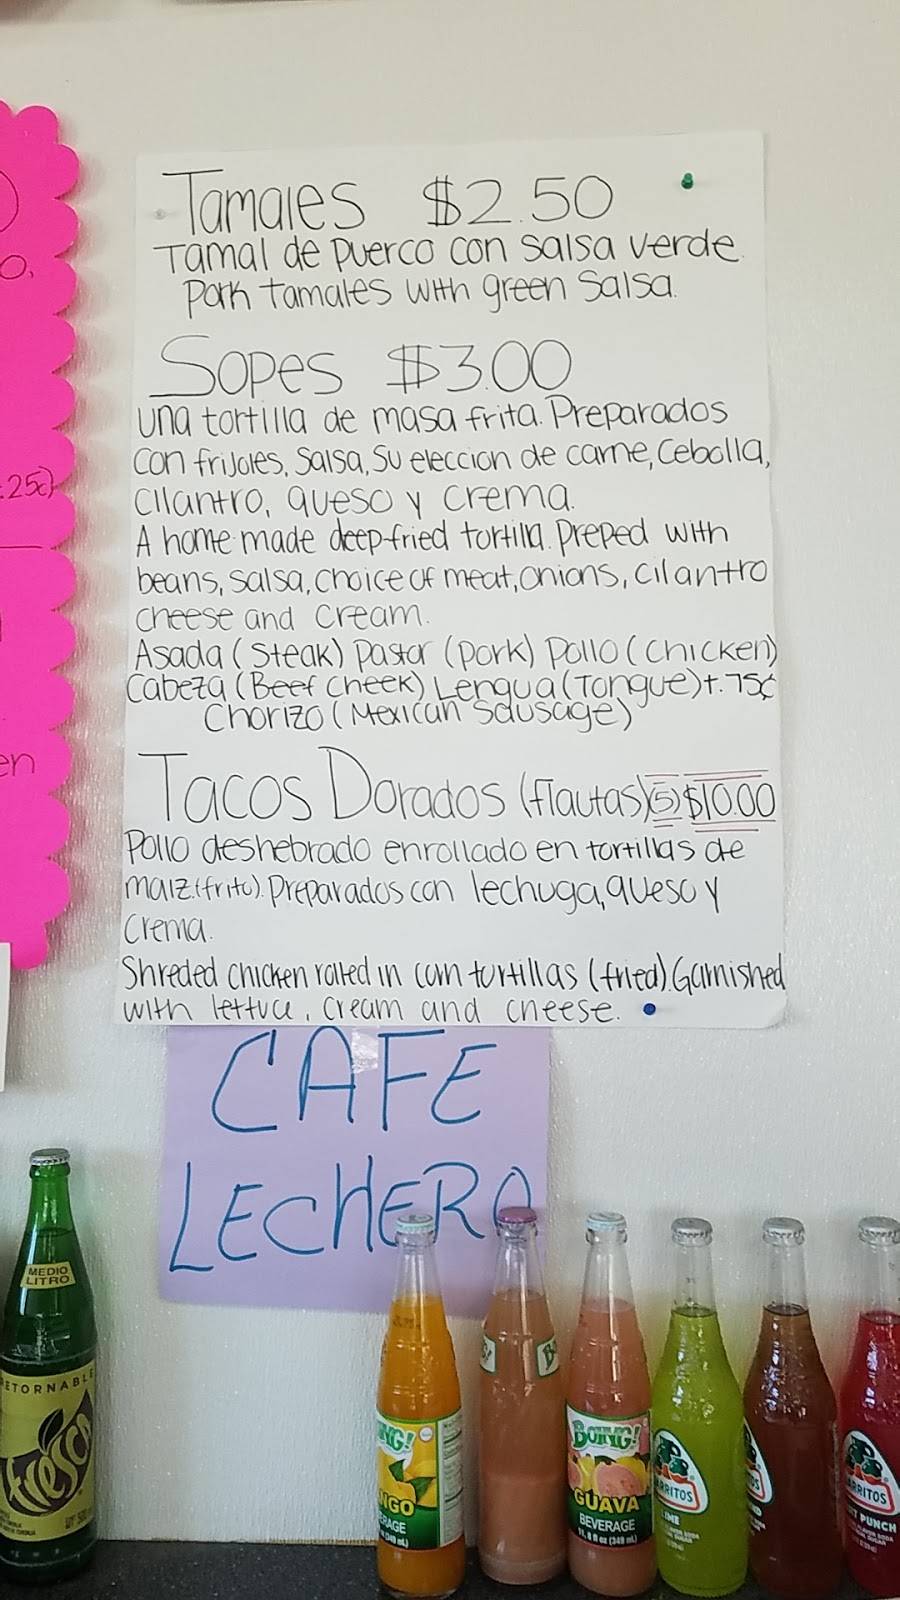 Tamales $2.50
Tamal de puerco con salsa verde.
Pork tamales with green salsa.
Sopes $3.00
una tortilla de masa frita. Preparados
con frijoles, salsa, su eleccion de carne, cebolla,
cilantro, queso y crema.
A home-made deep-fried tortilla. Preped with
beans, salsa, choice of meat, onions, cilantro
cheese and cream.
Asada (Steak) Pastor (pork) Pollo (chicken)
Cabeza (Beef cheek) Lengua (Tongue) +.75¢
Chorizo (Mexican sausage)
Tacos Dorados (flautas) (5) $10.00
Pollo deshebrado enrollado en tortillas de
maiz. (frito). Preparados con lechuga, queso y
crema.
Shreded chicken rolled in corn tortillas (fried). Garnished
with lettuce, cream and cheese.
CAFE
LECHERO
.25¢)
en
MEDIO
LITRO
RETORNABLE
fresca
ING!
NGO
RAGE
BOING!
GUAVA
BEVERAGE
11.8 fl oz (349 mL)
RRITOS
IME
ARRITOS
T PUNCH